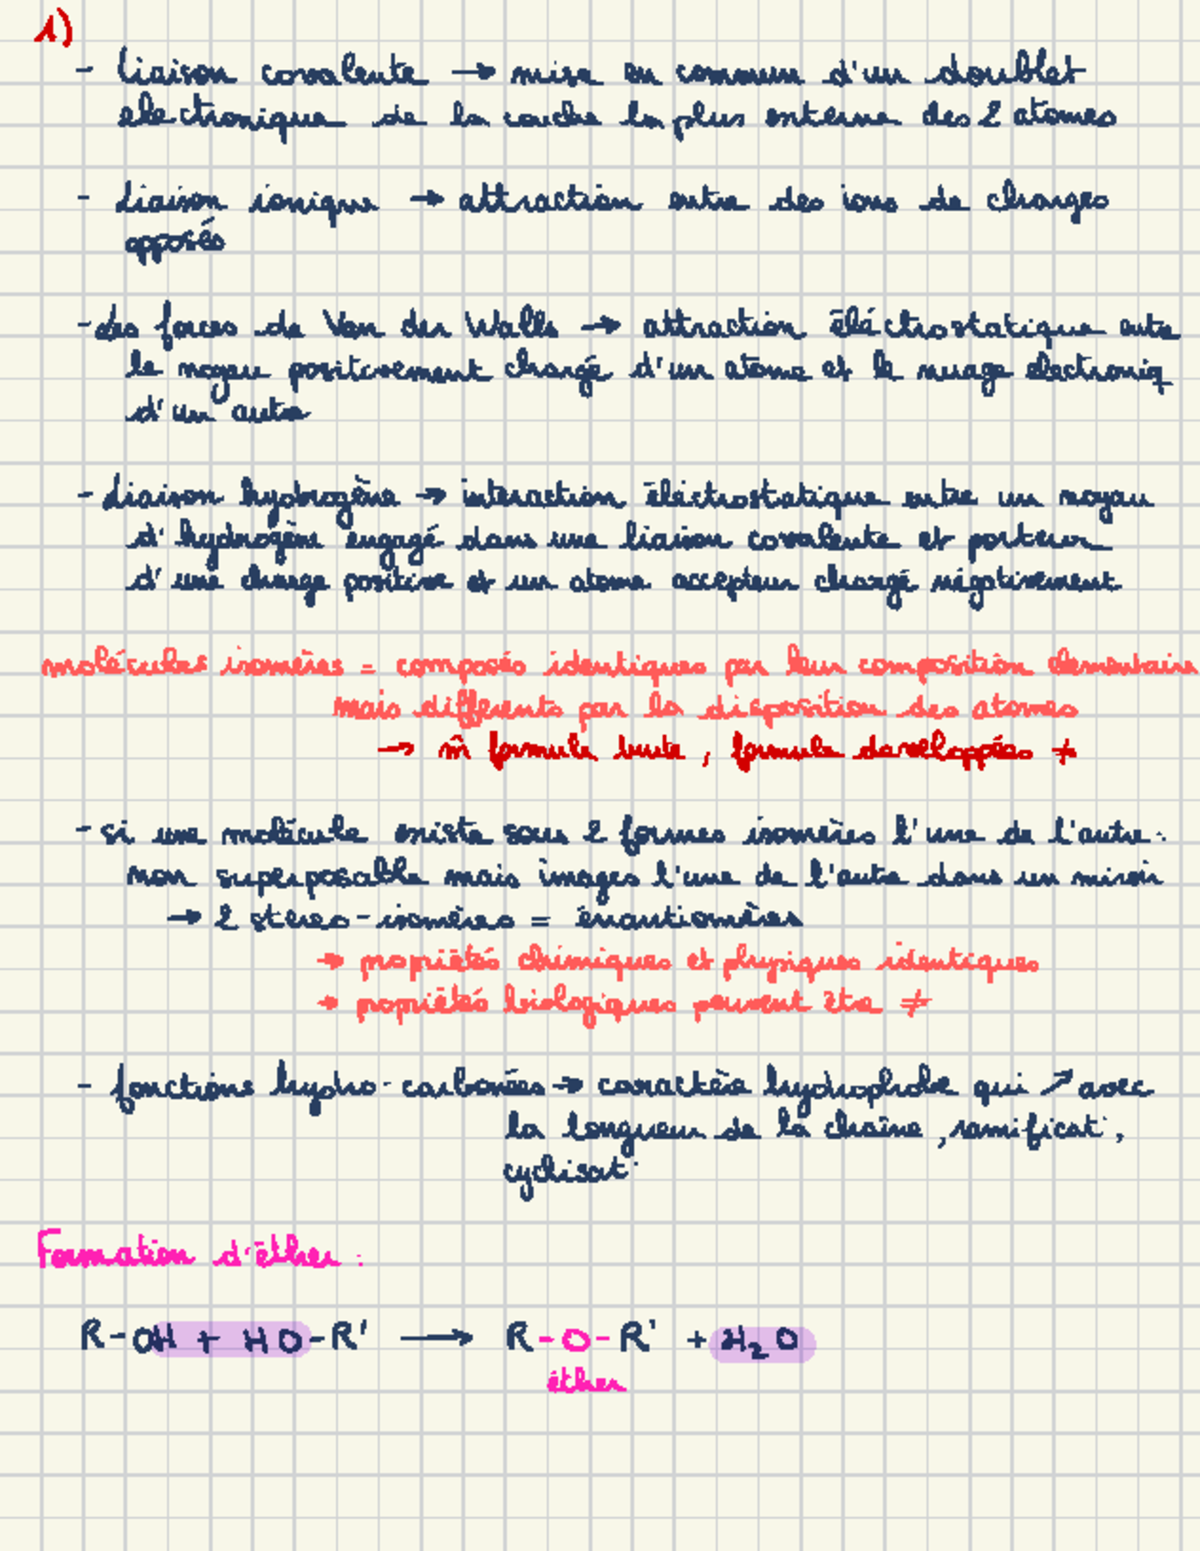 1)
- liaison covalente → mise en commun d'un doublet
electronique de la couche la plus externe des 2 atomes
- liaison ionique → attraction entre des ions de charges
opposés
- des forces de Van der Walls → attraction éléctrostatique entre
le noyau positivement chargé d'un atome et le nuage electroniq
d'un autre
- liaison hydrogène → interaction éléctrostatique entre un noyau
d'hydrogène engagé dans une liaison covalente et porteur
d'une charge positive et un atome accepteur chargé négativement
molécules isomères = composés identiques par leur composition elementaire
mais différents par la disposition des atomes
→ m̂ formule brute, formule developpées ≠
- si une molécule existe sous 2 formes isomères l'une de l'autre.
non superposable mais images l'une de l'autre dans un miroir
→ 2 stereo-isomères = énantiomères
→ propriétés chimiques et physiques identiques
→ propriétés biologiques peuvent être ≠
- fonctions hydro-carbonées → caractère hydrophobe qui ↗ avec
la longueur de la chaîne, ramificat°,
cyclisat°
Formation d'éther :
R-OH + HO-R' ⟶ R-O-R' + H₂O
éther